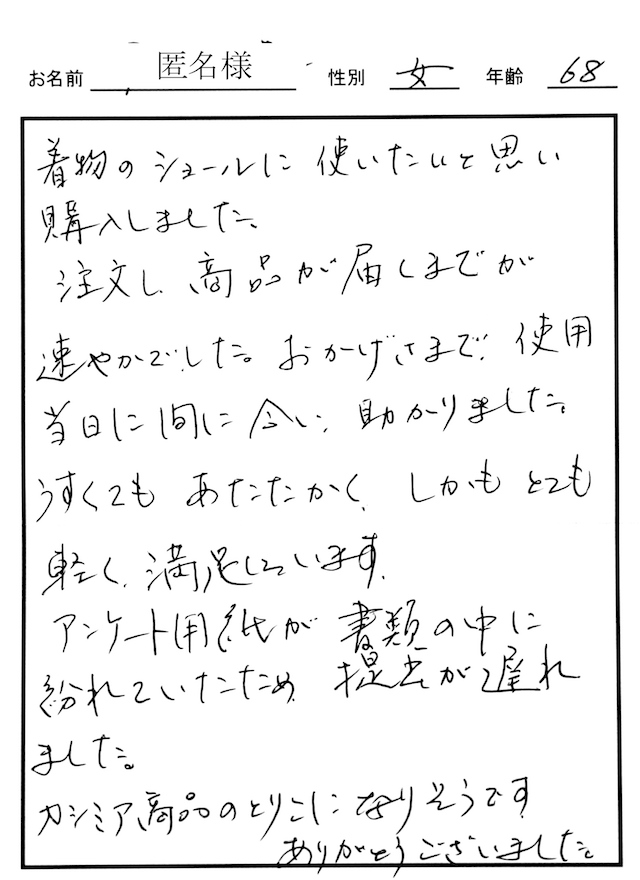 お名前 匿名様 性別 女 年齢 68
着物のショールに使いたいと思い
購入しました。
注文し、商品が届くまでが
速やかでした。おかげさまで、使用
当日に間に合い、助かりました。
うすくてもあたたかく、しかもとても
軽く、満足しています。
アンケート用紙が書類の中に
紛れていたため、提出が遅れ
ました。
カシミア商品のとりこになりそうです
ありがとうございました。